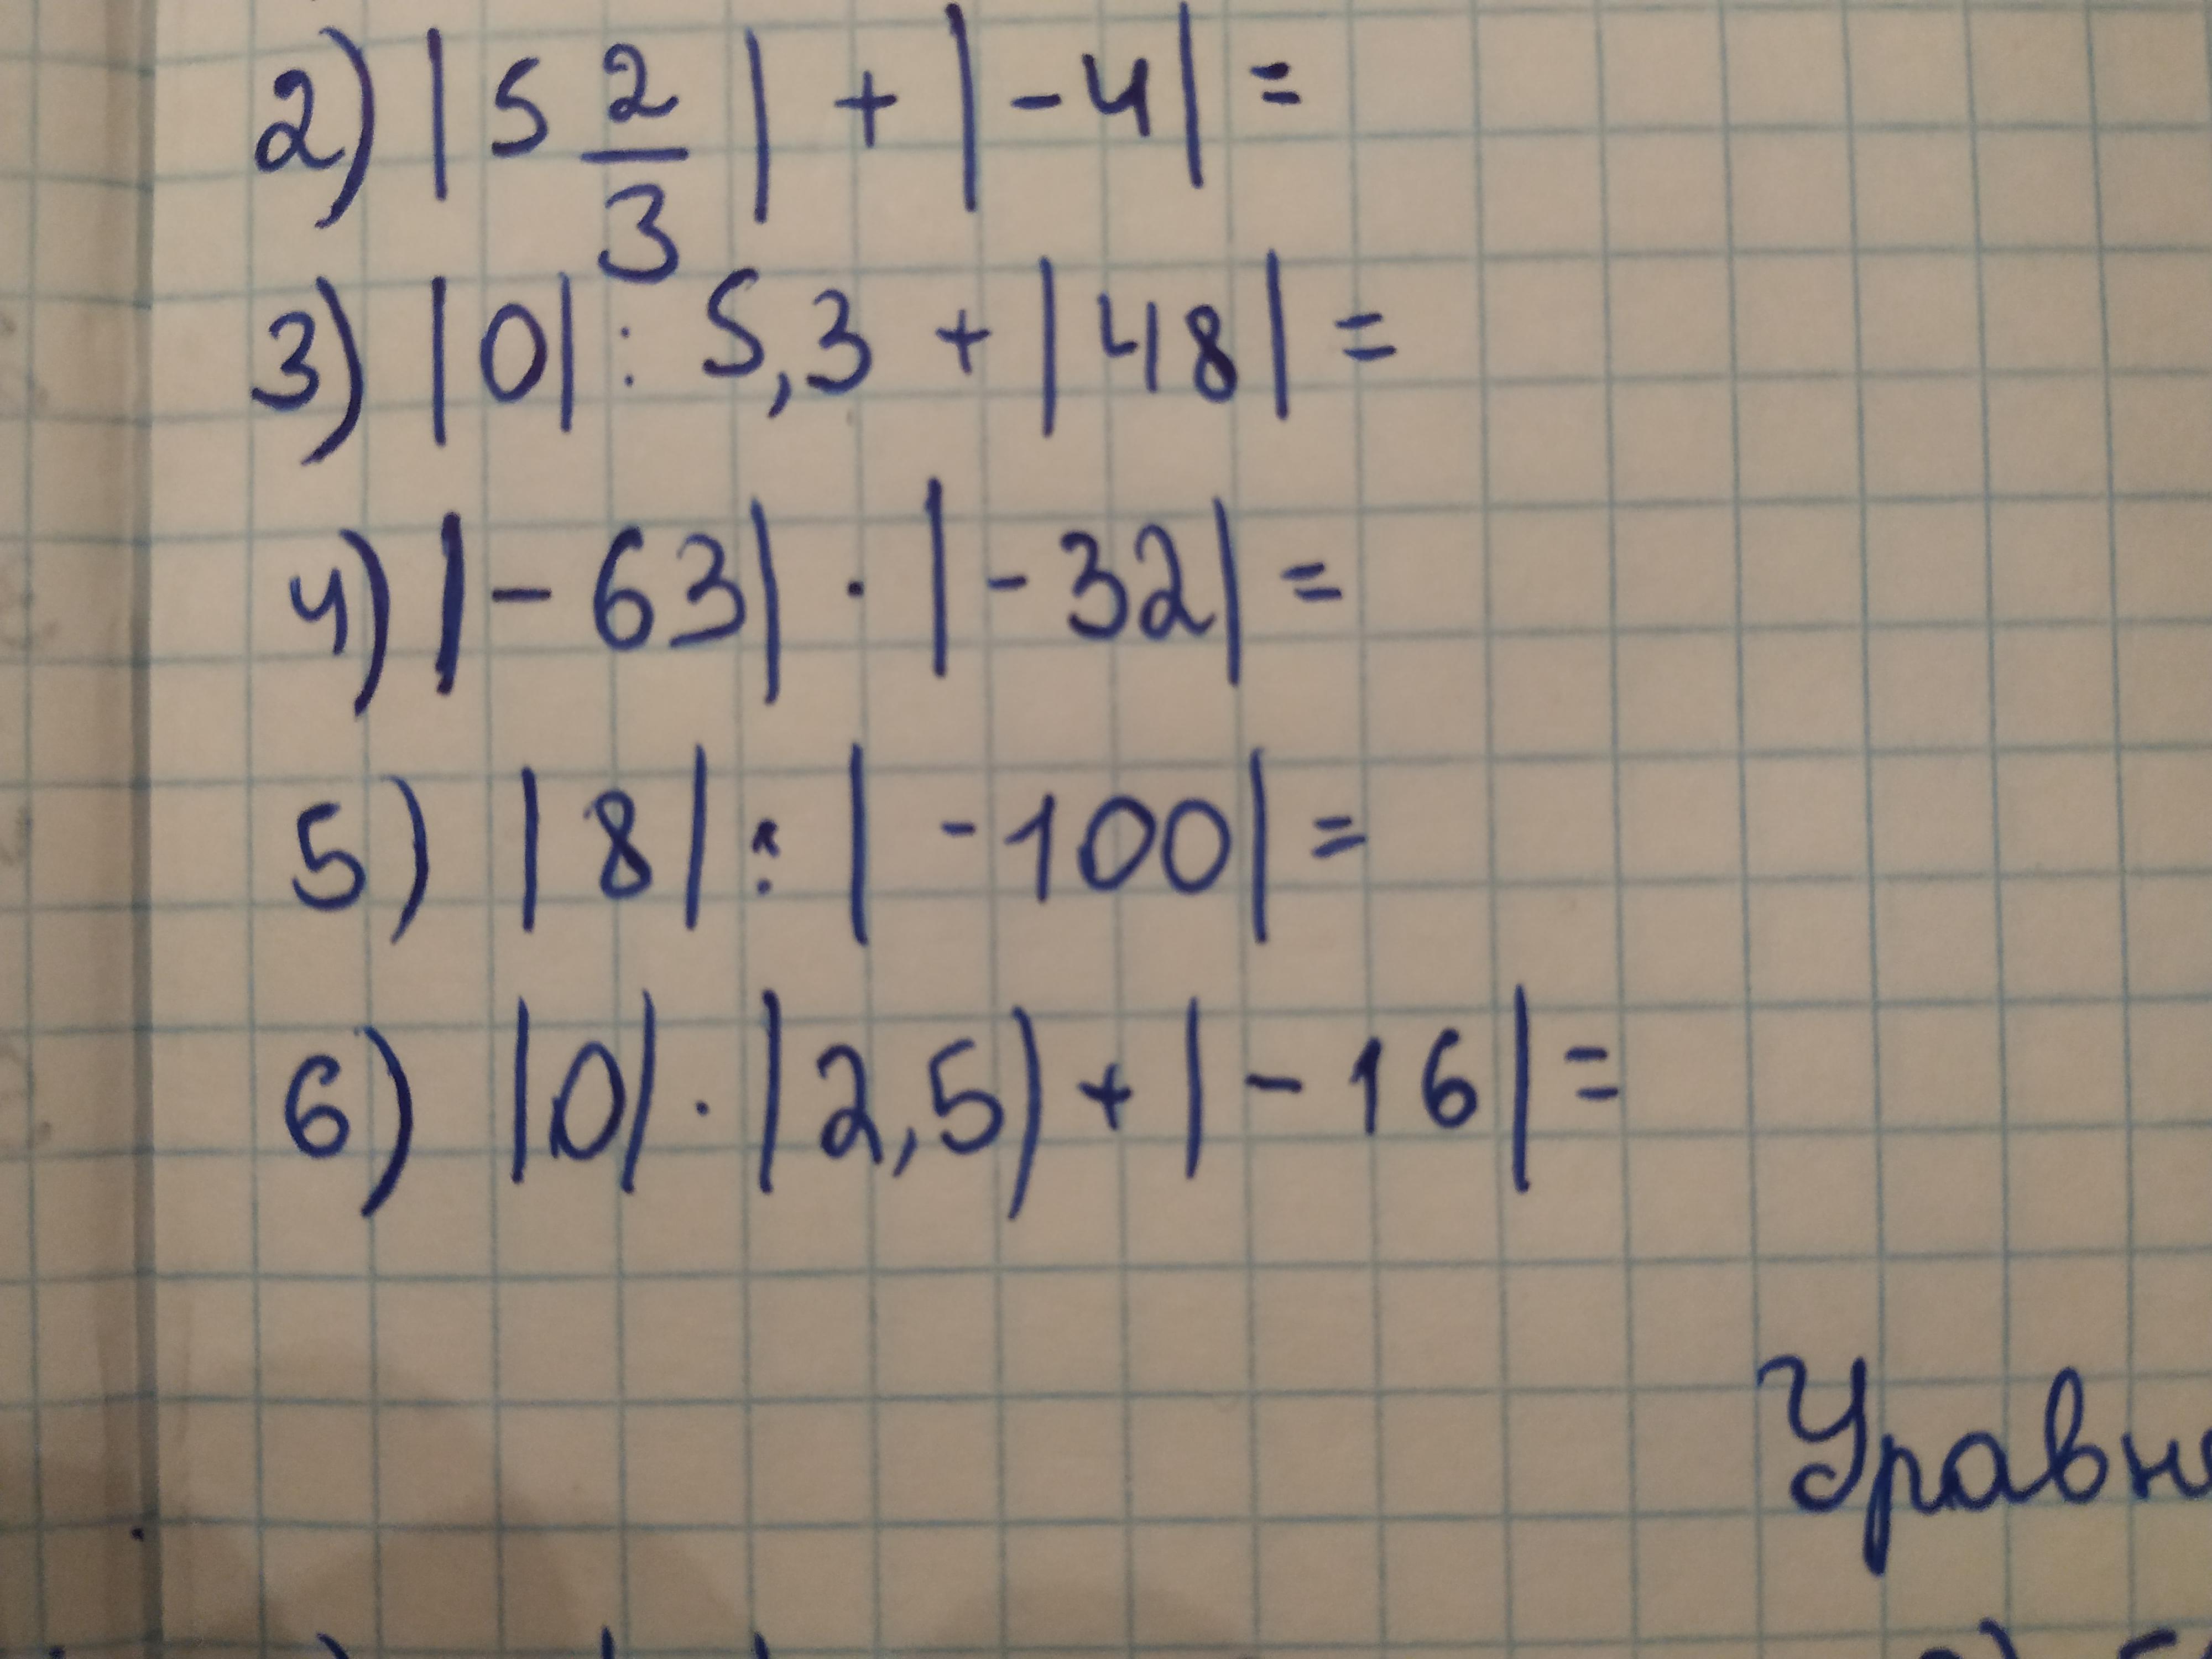 2) |5 2/3| + |-4| =
3) |0| : 5,3 + |48| =
4) |-63| · |-32| =
5) |8| : |-100| =
6) |0| · |2,5| + |-16| =